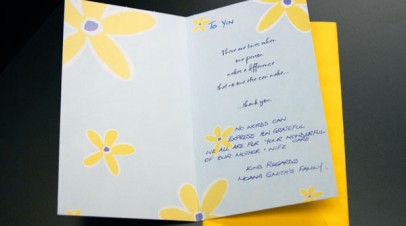 To YIN
There are times when
one person
makes a difference
that no one else can make...
...thank you
NO WORDS CAN
EXPRESS GRATEFUL
WE ALL ARE FOR YOUR WONDERFUL
OF OUR MOTHER + WIFE CARE
KIND REGARDS
MOANA SMITH'S FAMILY.